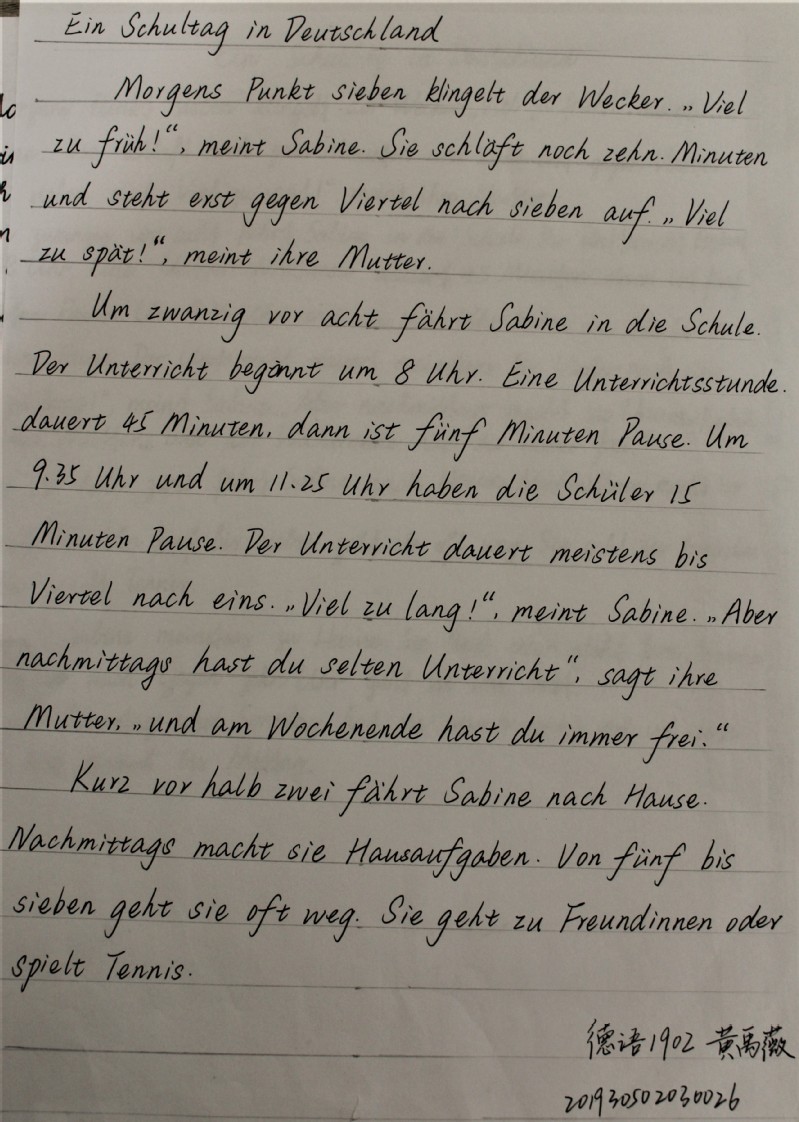 Ein Schultag in Deutschland
Morgens Punkt sieben klingelt der Wecker. „Viel
zu früh!“, meint Sabine. Sie schläft noch zehn. Minuten
und steht erst gegen Viertel nach sieben auf. „Viel
zu spät!“, meint ihre Mutter.
Um zwanzig vor acht fährt Sabine in die Schule.
Der Unterricht beginnt um 8 Uhr. Eine Unterrichtsstunde.
dauert 45 Minuten, dann ist fünf Minuten Pause. Um
9.35 Uhr und um 11.25 Uhr haben die Schüler 15
Minuten Pause. Der Unterricht dauert meistens bis
Viertel nach eins. „Viel zu lang!“, meint Sabine. „Aber
nachmittags hast du selten Unterricht“, sagt ihre
Mutter, „und am Wochenende hast du immer frei.“
Kurz vor halb zwei fährt Sabine nach Hause.
Nachmittags macht sie Hausaufgaben. Von fünf bis
sieben geht sie oft weg. Sie geht zu Freundinnen oder
spielt Tennis.
德语1902 黄禹薇
201930502030026